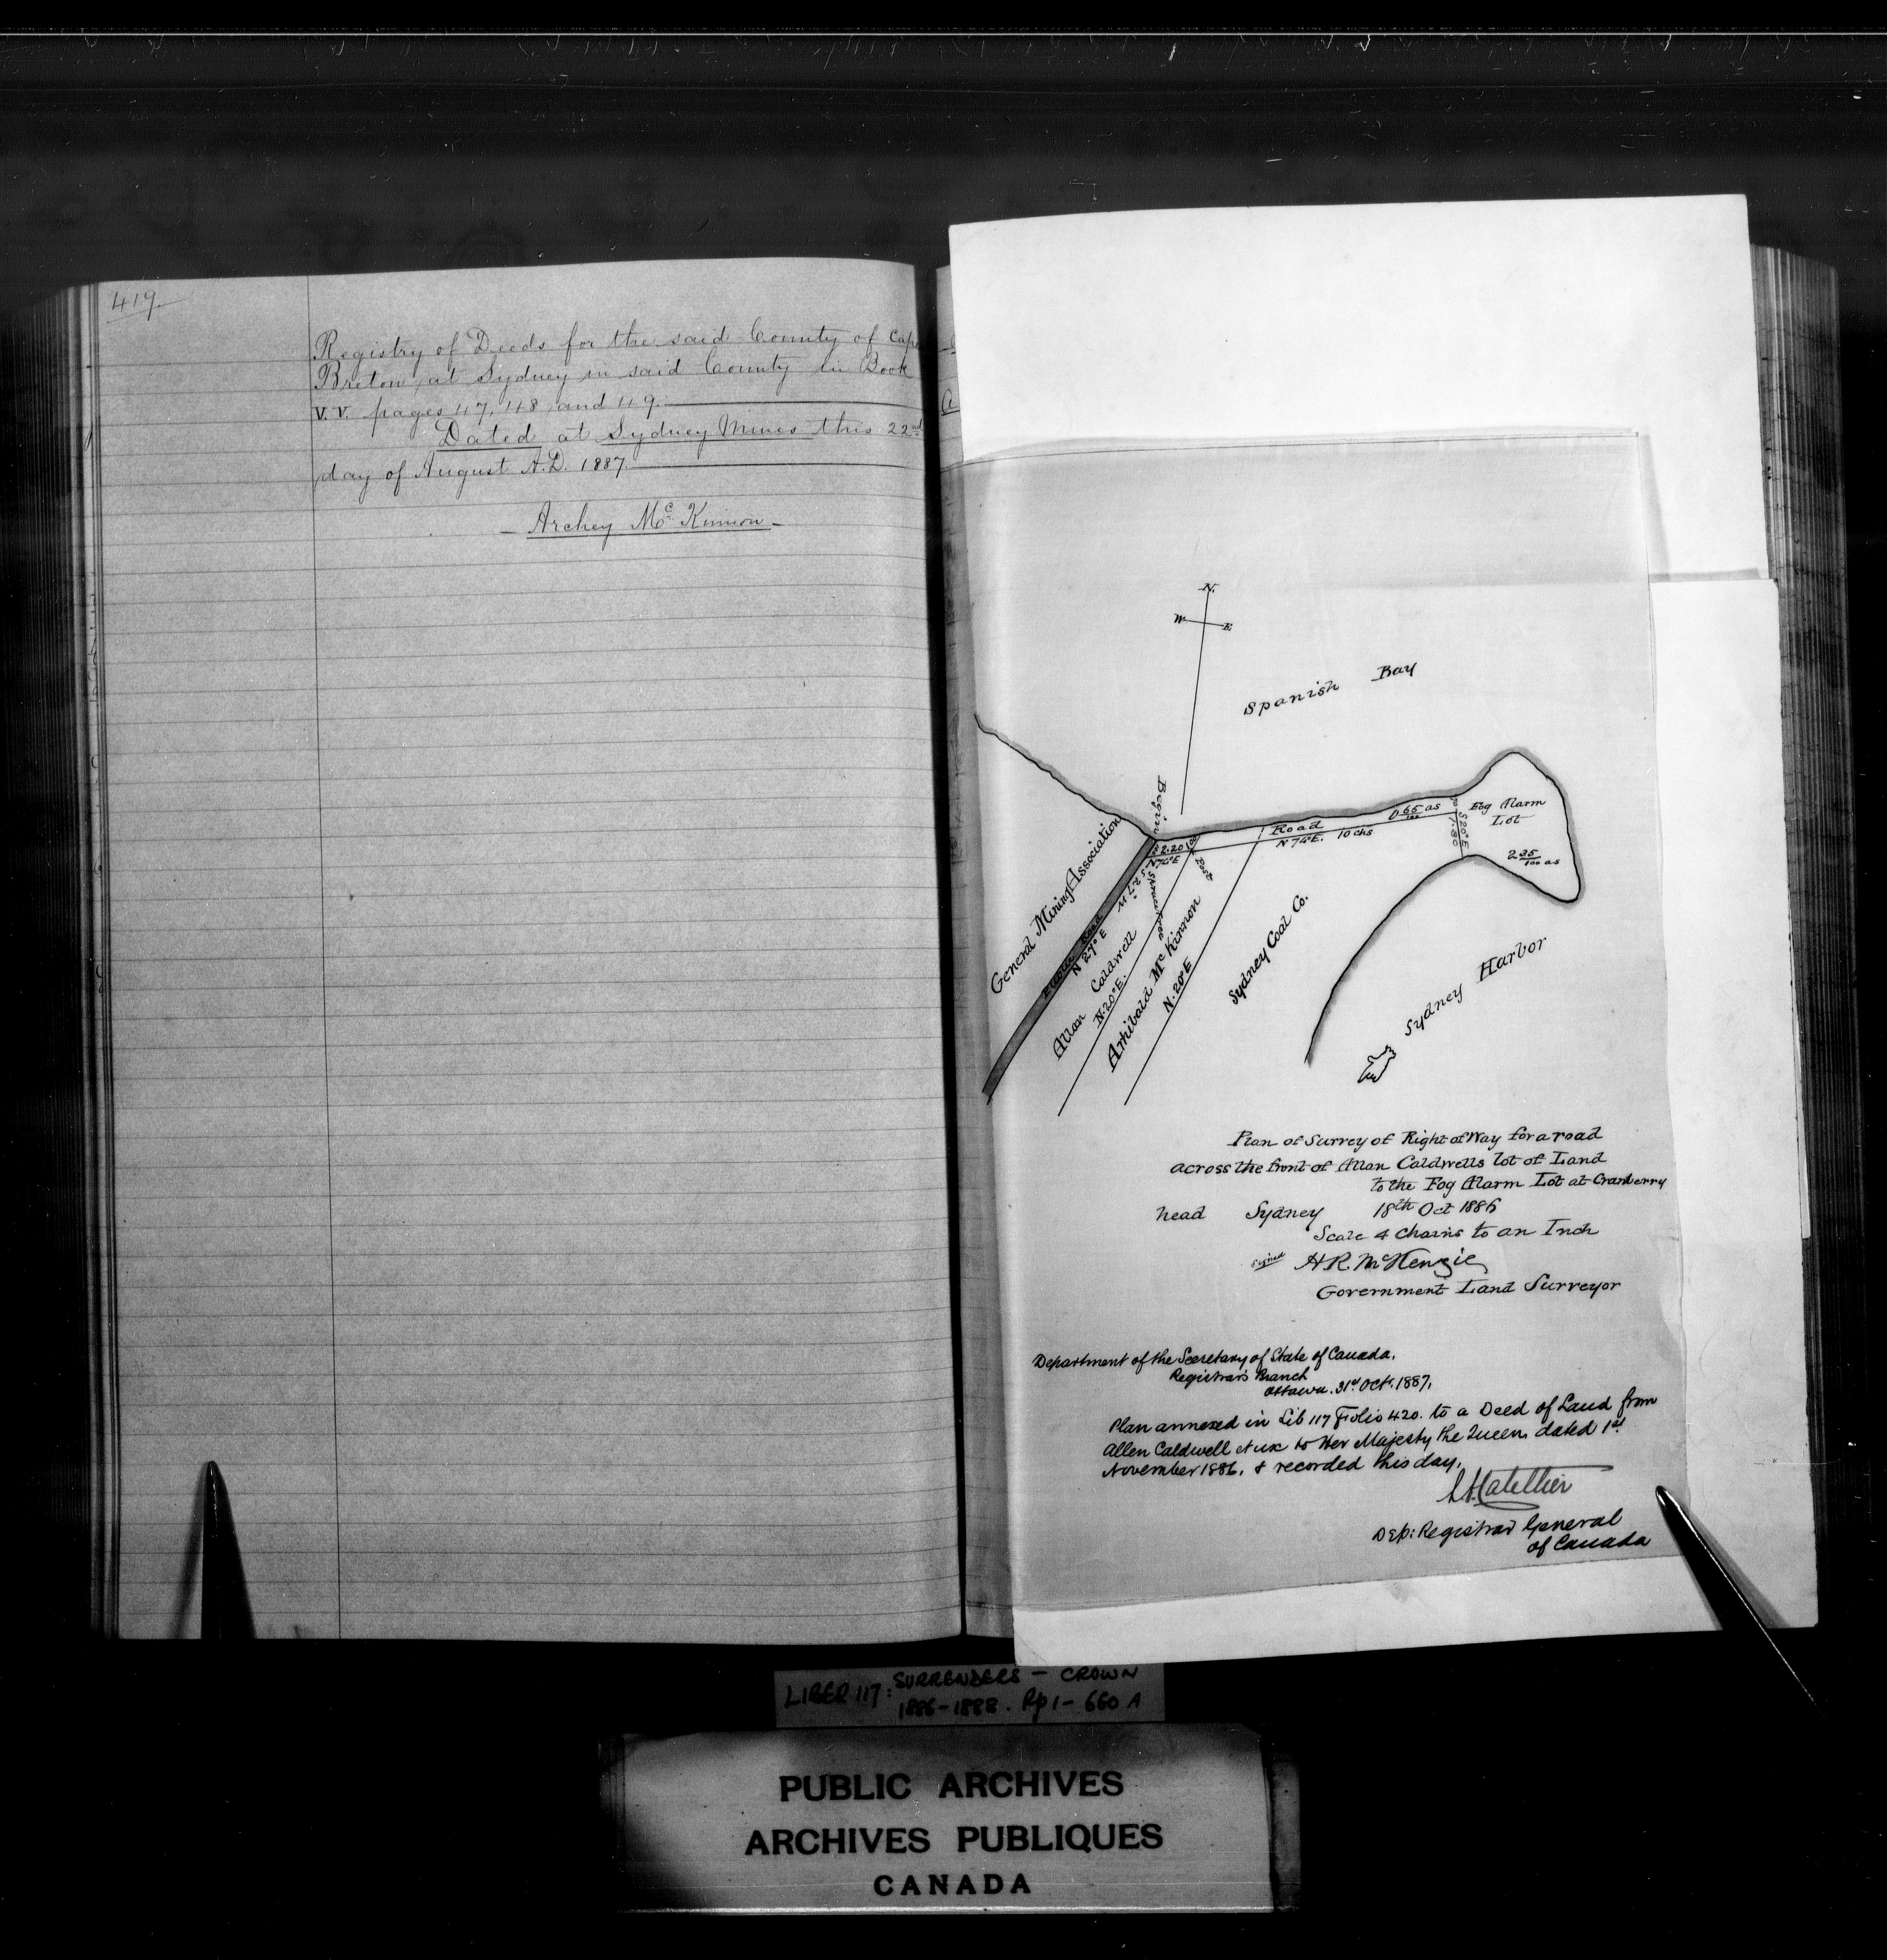 419.
Registry of Deeds for the said County of Cape
Breton, at Sydney in said County in Book
V.V. pages 117, 118, and 119.
Dated at Sydney Mines this 22nd
day of August A.D. 1887.
— Archey Mc Kinnon —
N.
W
E
Spanish Bay
Begin
General Mining Association
Road
N 27° E
Allan Caldwell
N. 20° E.
Archibald Mc Kinnon
N. 20° E
Sydney Coal Co.
2.20
N 74° E
S 27° W
Post
Road
N 74° E. 10 chs
0 65/100 as
S 20° E
Fog Alarm
Lot
2 35/100 as
Sydney Harbor
Plan of Survey of Right of Way for a road
across the front of Allan Caldwells lot of Land
to the Fog Alarm Lot at Cranberry
head Sydney 18th Oct 1886
Scale 4 chains to an Inch
Signed H R. McKenzie
Government Land Surveyor
Department of the Secretary of State of Canada,
Registrar's Branch
Ottawa. 31st Oct. 1887,
Plan annexed in Lib 117 Folio 420. to a Deed of Land from
Allen Caldwell et ux to Her Majesty the Queen, dated 1st
November 1886, & recorded this day,
Dep: Registrar General
of Canada
LIBER 117: SURRENDERS – CROWN
1886–1888. Pp 1– 660 A
PUBLIC ARCHIVES
ARCHIVES PUBLIQUES
CANADA